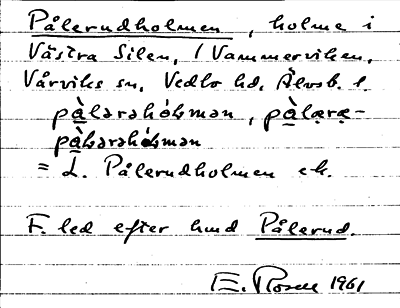 Pålerudholmen, holme i
Västra Silen, i Vammerviken,
Vårviks sn, Vedbo hd, Älvsb. l.
pàlərəhólmən, pàləræ-
= L. Pålerudholmen ek.
F. led efter hmd Pålerud.
E. Rosell 1961